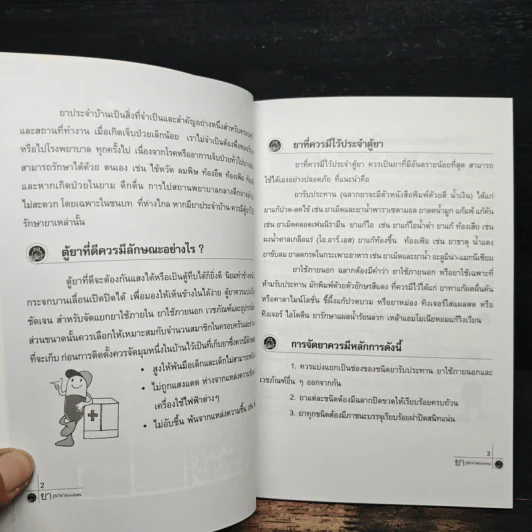 ยาประจำบ้านเป็นสิ่งที่จำเป็นและสำคัญอย่างหนึ่งสำหรับ
และสถานที่ทำงาน เมื่อเกิดเจ็บป่วยเล็กน้อย เราไม่จำเป็นต้อง
หรือไปโรงพยาบาล ทุกครั้งไป เนื่องจากโรคหรืออาการเจ็บป่วยทั่วไป
สามารถรักษาได้ด้วย ตนเอง เช่น ไข้หวัด ลมพิษ ท้องอืด ท้องเฟ้อ
และหากเกิดป่วยในยาม ดึกดื่น การไปสถานพยาบาลกลางดึก
ไม่สะดวก โดยเฉพาะในชนบท ที่ห่างไกล หากมียาประจำบ้าน
รักษายาเหล่านั้น
ตู้ยาที่ดีควรมีลักษณะอย่างไร ?
ตู้ยาที่ดีจะต้องกันแสงได้หรือเป็นตู้ทึบได้ก็ยิ่งดี นิยมทำ
กระจกบานเลื่อนเปิดปิดได้ เพื่อมองให้เห็นข้างในได้ง่าย
ชัดเจน สำหรับจัดแยกยาใช้ภายใน ยาใช้ภายนอก เวชภัณฑ์
ส่วนขนาดนั้นควรเลือกให้เหมาะสมกับจำนวนสมาชิกในครอบครัว
ที่จะเก็บ ก่อนการติดตั้งควรจัดมุมหนึ่งในบ้านไว้เป็นที่เก็บยาซึ่งควรมีลักษณะ
• สูงให้พ้นมือเด็กและเด็กไม่สามารถ
• ไม่ถูกแสงแดด ห่างจากแหล่งความร้อน
เครื่องใช้ไฟฟ้าต่างๆ
• ไม่อับชื้น พ้นจากแหล่งความชื้น เช่น
2
ยา
ยาที่ควรมีไว้ประจำตู้ยา
ยาที่ควรมีไว้ประจำตู้ยา ควรเป็นยาที่มีอันตรายน้อยที่สุด สามารถ
ใช้ได้เองอย่างปลอดภัย ที่แนะนำคือ
ยารับประทาน (ฉลากยาจะมีตัวหนังสือพิมพ์ด้วยสี น้ำเงิน) ได้แก่
ยาแก้ปวด-ลดไข้ เช่น ยาเม็ดและยาน้ำพาราเซตามอล ยาลดน้ำมูก แก้แพ้ แก้คัน
เช่น ยาเม็ดคลอเฟนนิรามีน ยาแก้ไอ เช่น ยาแก้ไอน้ำดำ ยาแก้ ท้องเสีย เช่น
ผงน้ำตาลเกลือแร่ (โอ.อาร์.เอส) ยาแก้ท้องขึ้น ท้องเฟ้อ เช่น ยาธาตุ น้ำแดง
ยาขับลม ยาลดกรดในกระเพาะอาหาร เช่น ยาเม็ดและยาน้ำ อะลูมิน่า-แมกนีเซียม
ยาใช้ภายนอก ฉลากต้องมีคำว่า ยาใช้ภายนอก หรือยาใช้เฉพาะที่
ห้ามรับประทาน มักพิมพ์ด้วยตัวอักษรสีแดง ที่ควรมีไว้ได้แก่ ยาทาแก้ผดผื่นคัน
หรือคาลาไมน์โลชั่น ขี้ผึ้งแก้ปวดบวม หรือยาหม่อง ทิงเจอร์ใส่แผลสด หรือ
ทิงเจอร์ ไอโอดีน ยารักษาแผลน้ำร้อนลวก เหล้าแอมโมเนียหอมแก้วิงเวียน
การจัดยาควรมีหลักการดังนี้
1. ควรแบ่งแยกเป็นช่องของชนิดยารับประทาน ยาใช้ภายนอกและ
เวชภัณฑ์อื่น ๆ ออกจากกัน
2. ยาแต่ละชนิดต้องมีฉลากปิดขวดให้เรียบร้อยครบถ้วน
3. ยาทุกชนิดต้องมีภาชนะบรรจุเรียบร้อยฝาปิดสนิทแน่น
3
ยา